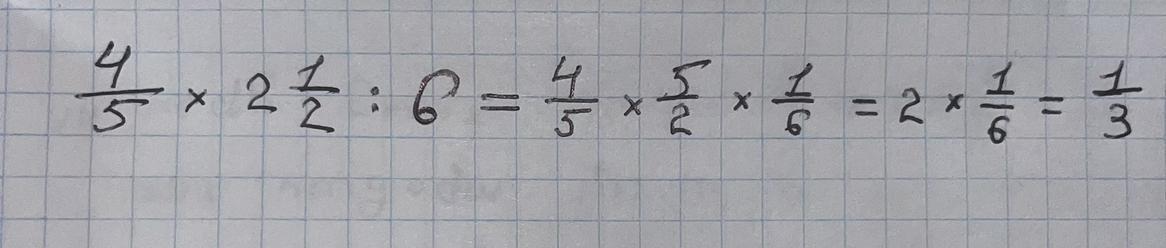 4/5 × 2 1/2 : 6 = 4/5 × 5/2 × 1/6 = 2 × 1/6 = 1/3